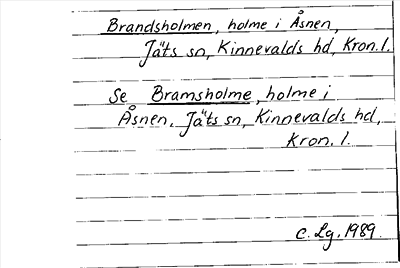 Brandsholmen, holme i Åsnen,
Jäts sn, Kinnevalds hd, Kron. l.
Se Bramsholme, holme i
Åsnen, Jäts sn, Kinnevalds hd,
Kron. l.
C. Lg. 1989.